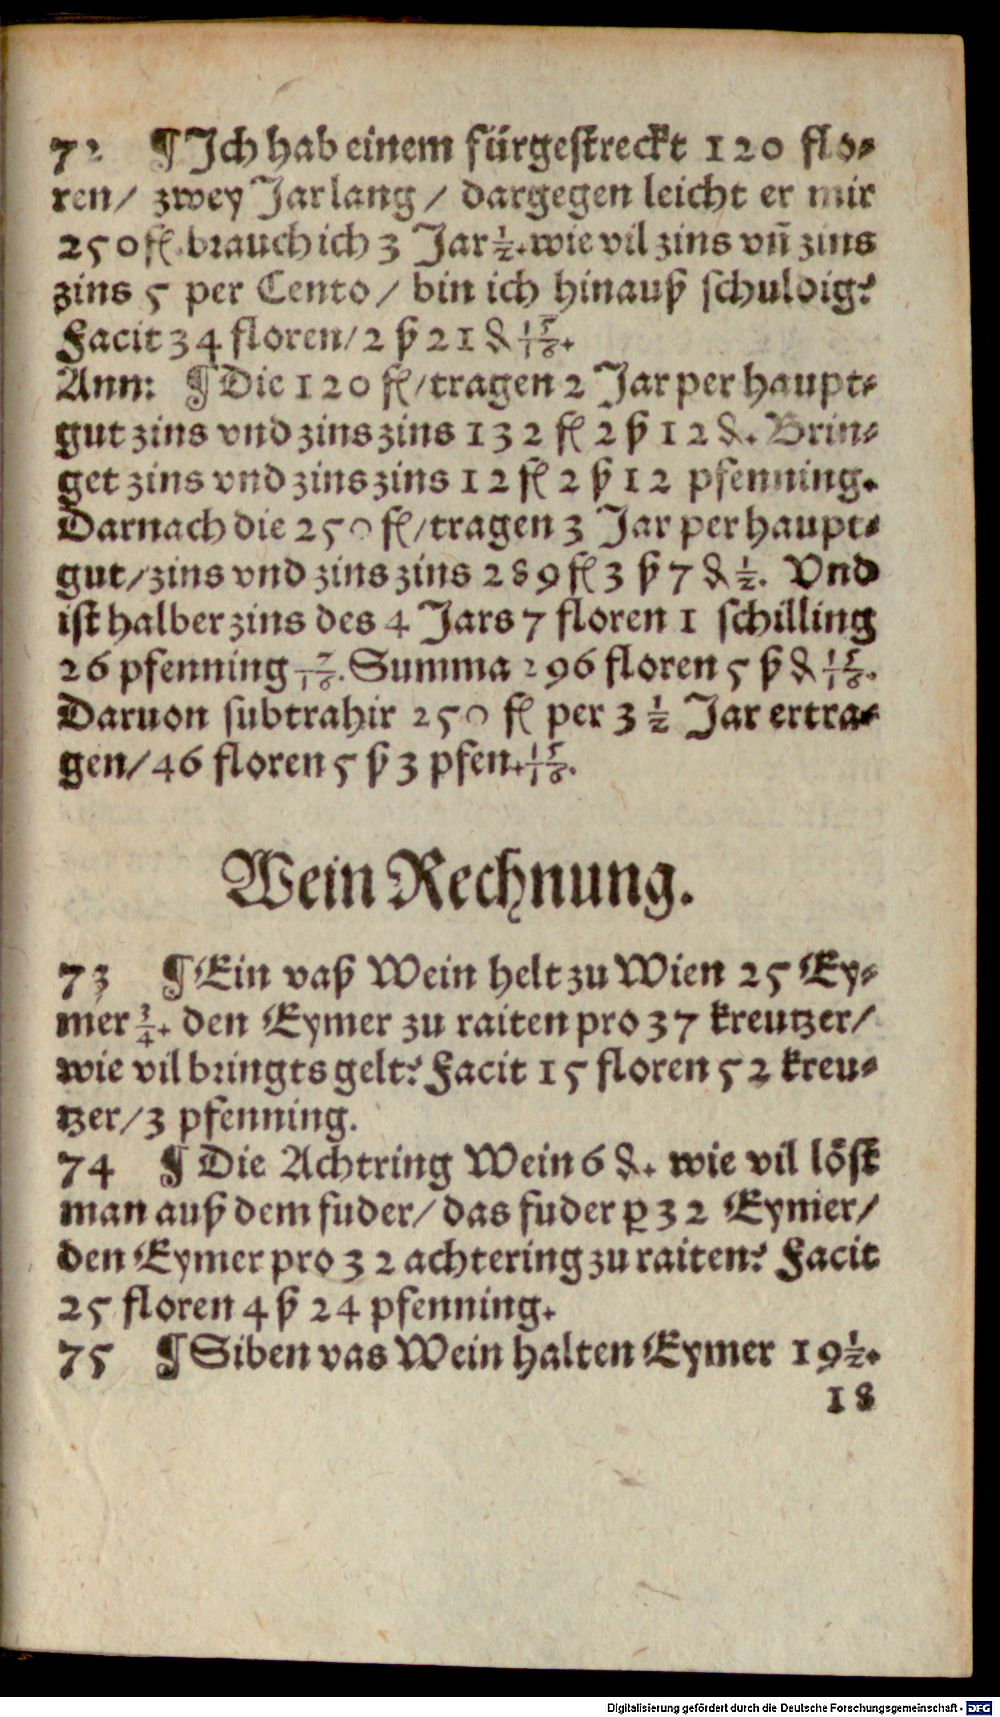 72 ¶ Ich hab einem fürgestreckt 120 flo⸗
ren/ zwey Jar lang / dargegen leicht er mir
250 fl. brauch ich 3 Jar ½. wie vil zins vñ zins
zins 5 per Cento/ bin ich hinauß schuldig?
Facit 34 floren/ 2 ß 21 ₰ 15/16.
Ann: ¶ Die 120 fl/ tragen 2 Jar per haupt⸗
gut zins vnd zins zins 132 fl 2 ß 12 ₰. Brin⸗
get zins vnd zins zins 12 fl 2 ß 12 pfenning.
Darnach die 250 fl/ tragen 3 Jar per haupt⸗
gut/ zins vnd zins zins 289 fl 3 ß 7 ₰ ½. Vnd
ist halber zins des 4 Jars 7 floren 1 schilling
26 pfenning 7/16. Summa 296 floren 5 ß ₰ 15/16.
Daruon subtrahir 250 fl per 3 ½ Jar ertra⸗
gen/ 46 floren 5 ß 3 pfen. 15/16.
Wein Rechnung.
73 ¶ Ein vaß Wein helt zu Wien 25 Ey⸗
mer ¾. den Eymer zu raiten pro 37 kreutzer/
wie vil bringts gelt? Facit 15 floren 52 kreu⸗
tzer/ 3 pfenning.
74 ¶ Die Achtring Wein 6 ₰. wie vil löst
man auß dem fuder/ das fuder ꝑ 32 Eymer/
den Eymer pro 32 achtering zu raiten? Facit
25 floren 4 ß 24 pfenning.
75 ¶ Siben vas Wein halten Eymer 19 ½.
18
Digitalisierung gefördert durch die Deutsche Forschungsgemeinschaft - DFG